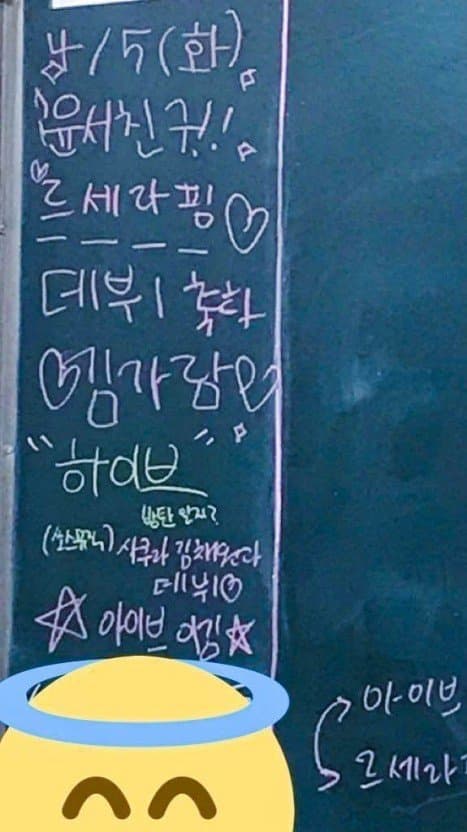 4/5(화)
윤서친구!!
르세라핌
데뷔 축하
김가람
"하이브"
방탄 알지?
(쏘스뮤직) 사쿠라 김채원과
데뷔
아이브 이김
아이브
르세라